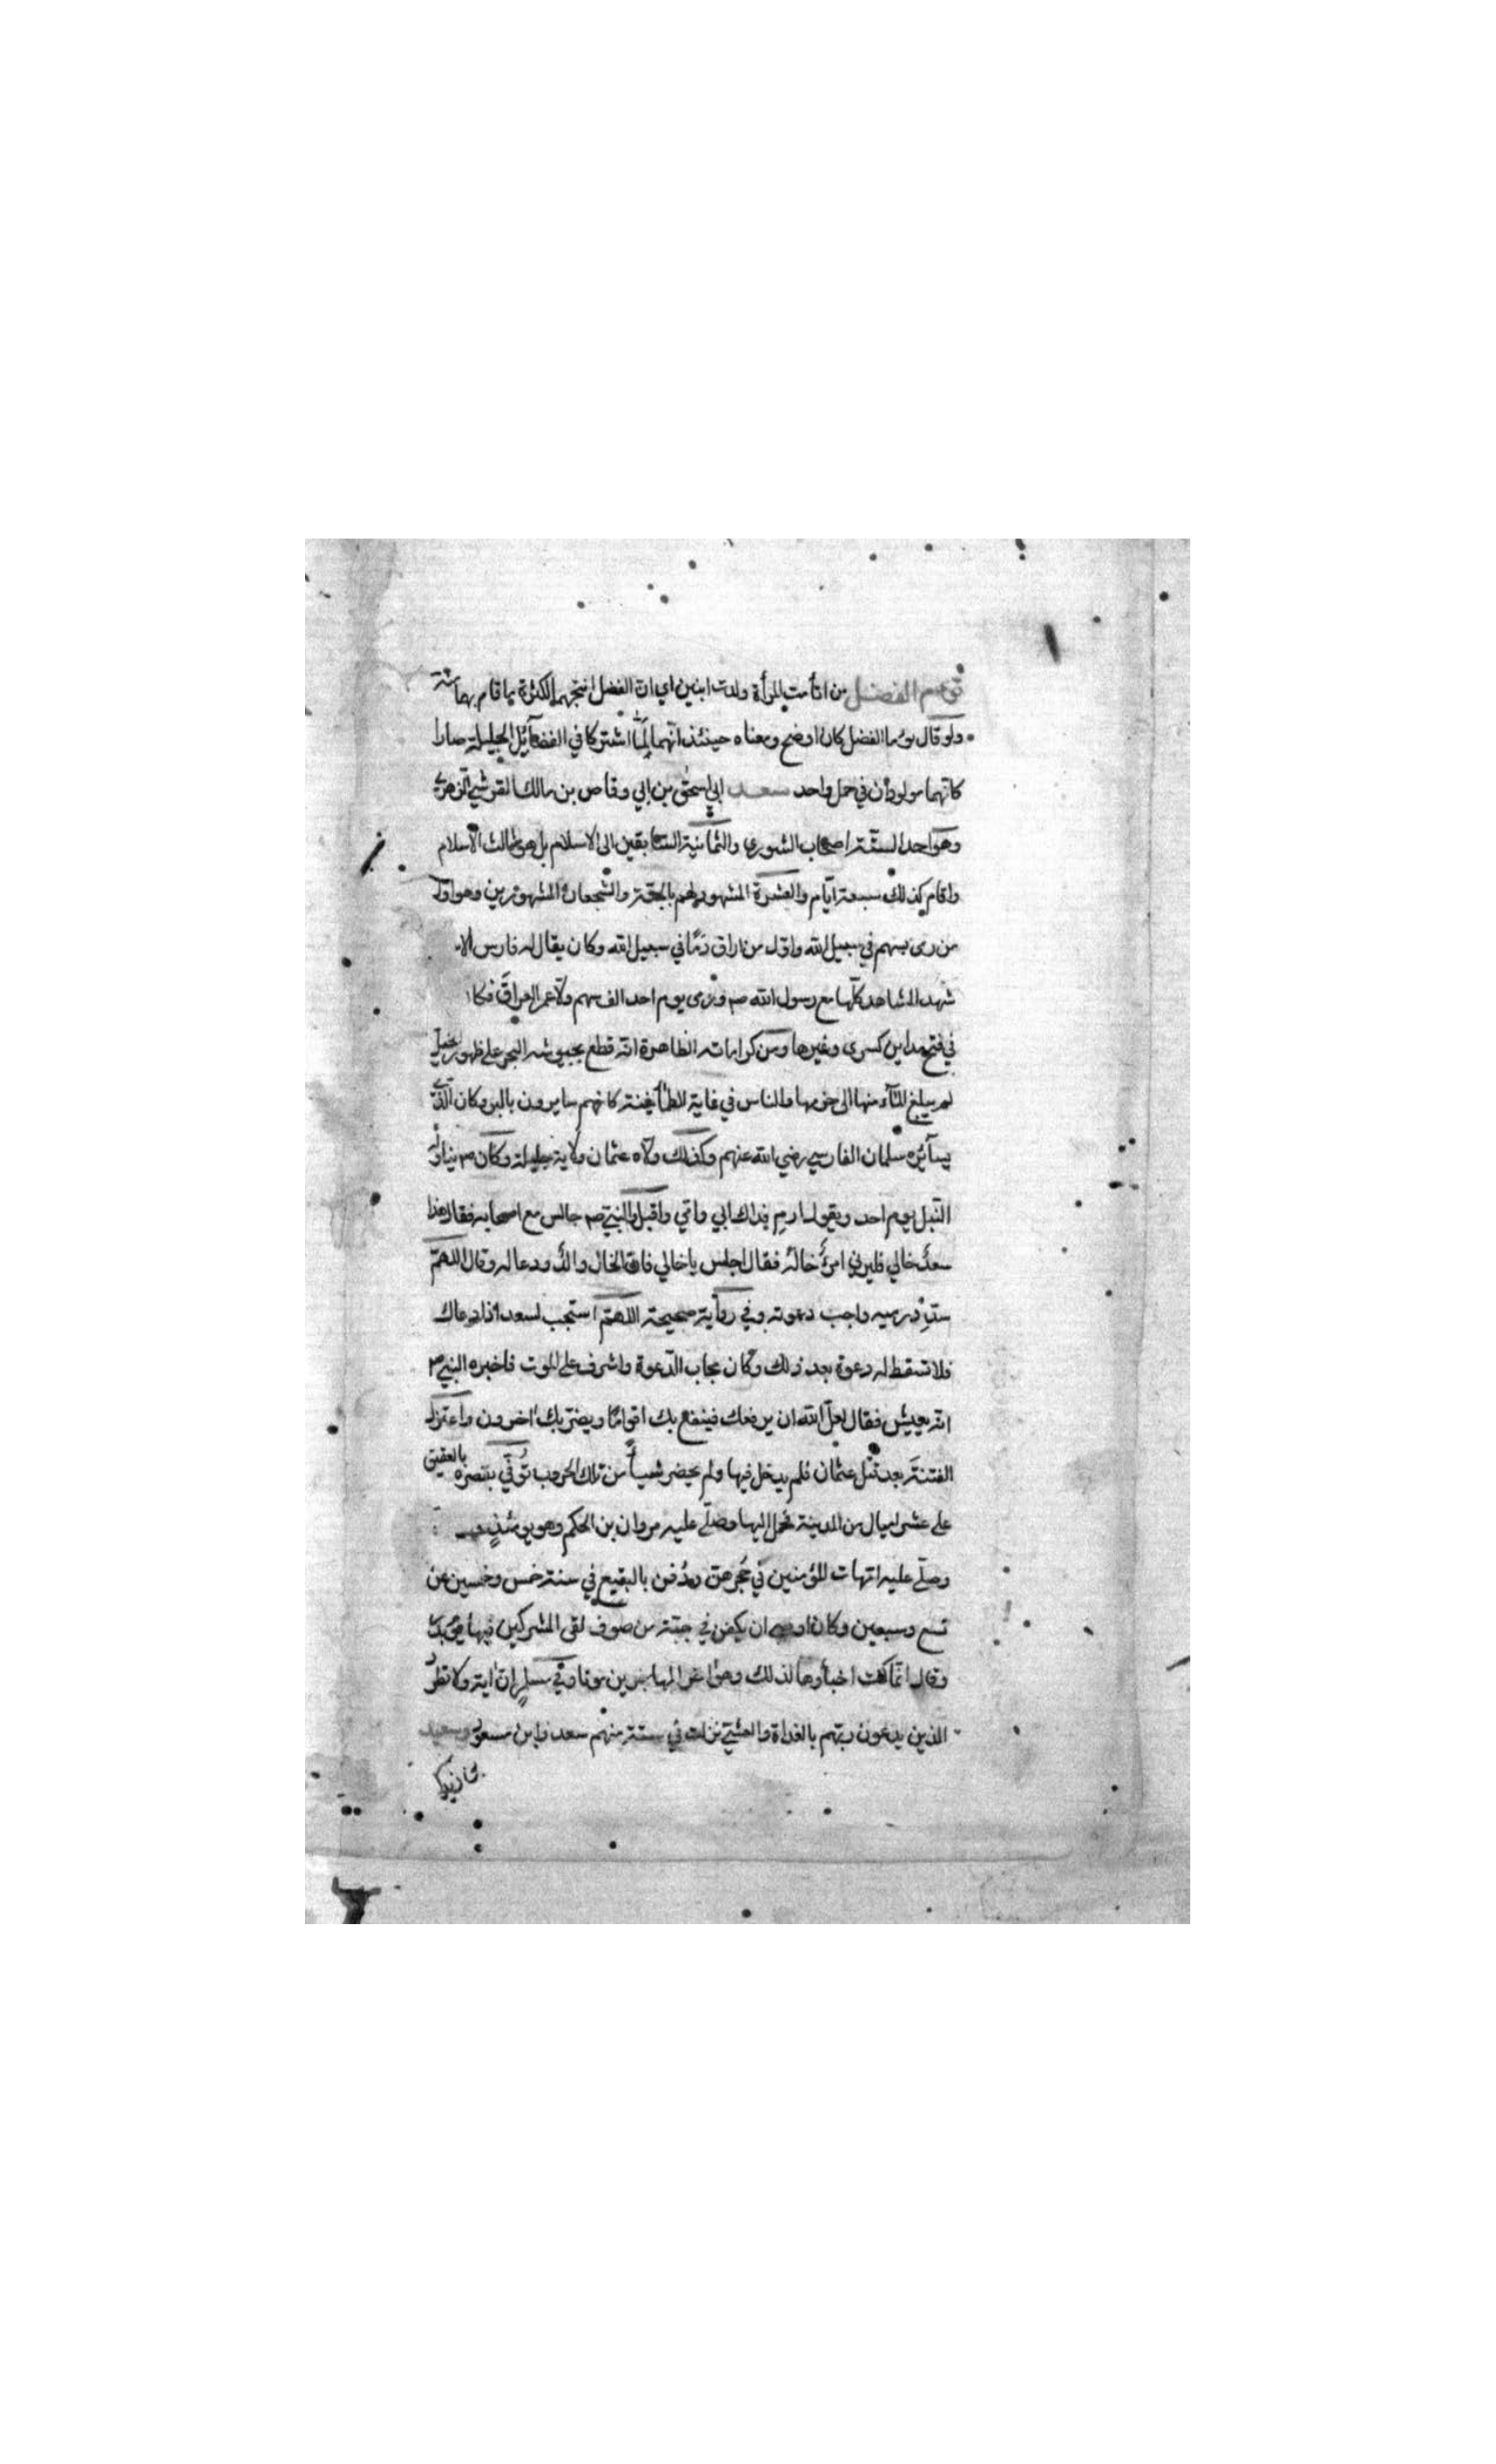 توءم الفضل من اتأمت المرأة ولدت ابنين اي ان الفضل انتجهما لكثرة ما قام بهما منه
ولو قال توءما الفضل كان اوضح ومعناه حينئذ انهما لما اشتركا في الفضآئل الجليلة صارا
كانهما مولودان في حمل واحد سعد ابي اسحق بن ابي وقاص بن مالك القرشي الزهري
وهو احد الستة اصحاب الشورى والثمانية السابقين الى الاسلام بل هو ثالث الاسلام
واقام كذلك سبعة ايام والعشرة المشهود لهم بالجنة والشجعان المشهورين وهو اول
من رمى بسهم في سبيل الله واول من اراق دما في سبيل الله وكان يقال له فارس الا
شهد المشاهد كلها مع رسول الله صم ورمى يوم احد الف سهم ولاه عمر العراق فكا
في فتح مداين كسرى وغيرها ومن كراماته الظاهرة انه قطع بجيوشه البحر على ظهور الخيل
لم يبلغ المآء منها الى حزمها والناس في غاية الطمأنينة كانهم سايرون بالبر وكان الذي
يسآئره سلمان الفارسي رضي الله عنهم وكذلك ولاه عثمان ولاية جليلة وكان صم يناوله
النبل يوم احد ويقول ارم فداك ابي وامي واقبل والنبي صم جالس مع اصحابه فقال هذا
سعد خالي فليرني امرؤ خاله فقال اجلس ياخالي فان الخال والد ودعا له وقال اللهم
سدد رميه واجب دعوته وفي رواية صحيحة اللهم استجب لسعد اذا دعاك
فلا تسقط له دعوة بعد ذلك وكان مجاب الدعوة واشرف على الموت فاخبره النبي صم
انه يعيش فقال لعل الله ان يرفعك فينفع بك اقواما ويضر بك اخرون واعتزل
الفتنة بعد قتل عثمان فلم يدخل فيها ولم يحضر شيا من تلك الحروب توفي بقصره بالعقيق
على عشر ليال من المدينة فحمل اليها وصلى عليه مروان بن الحكم وهو يومئذ
وصلى عليه امهات المؤمنين في حجرهن ودفن بالبقيع في سنة خمس وخمسين عن
تسع وسبعين وكان اوصى ان يكفن في جبة من صوف لقى المشركين فيها يوم بدر
وقال انما كنت اخبأوها لذلك وهو اخر المهاجرين موتا وفي مسلم ان اية ولا تطرد
الذين يدعون ربهم بالغداة والعشي نزلت في ستة منهم سعد وابن مسعود وسعيد